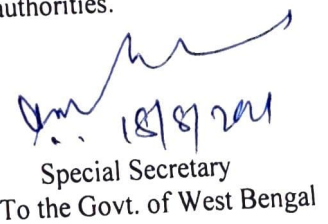 authorities.
18/8/2021
Special Secretary
To the Govt. of West Bengal